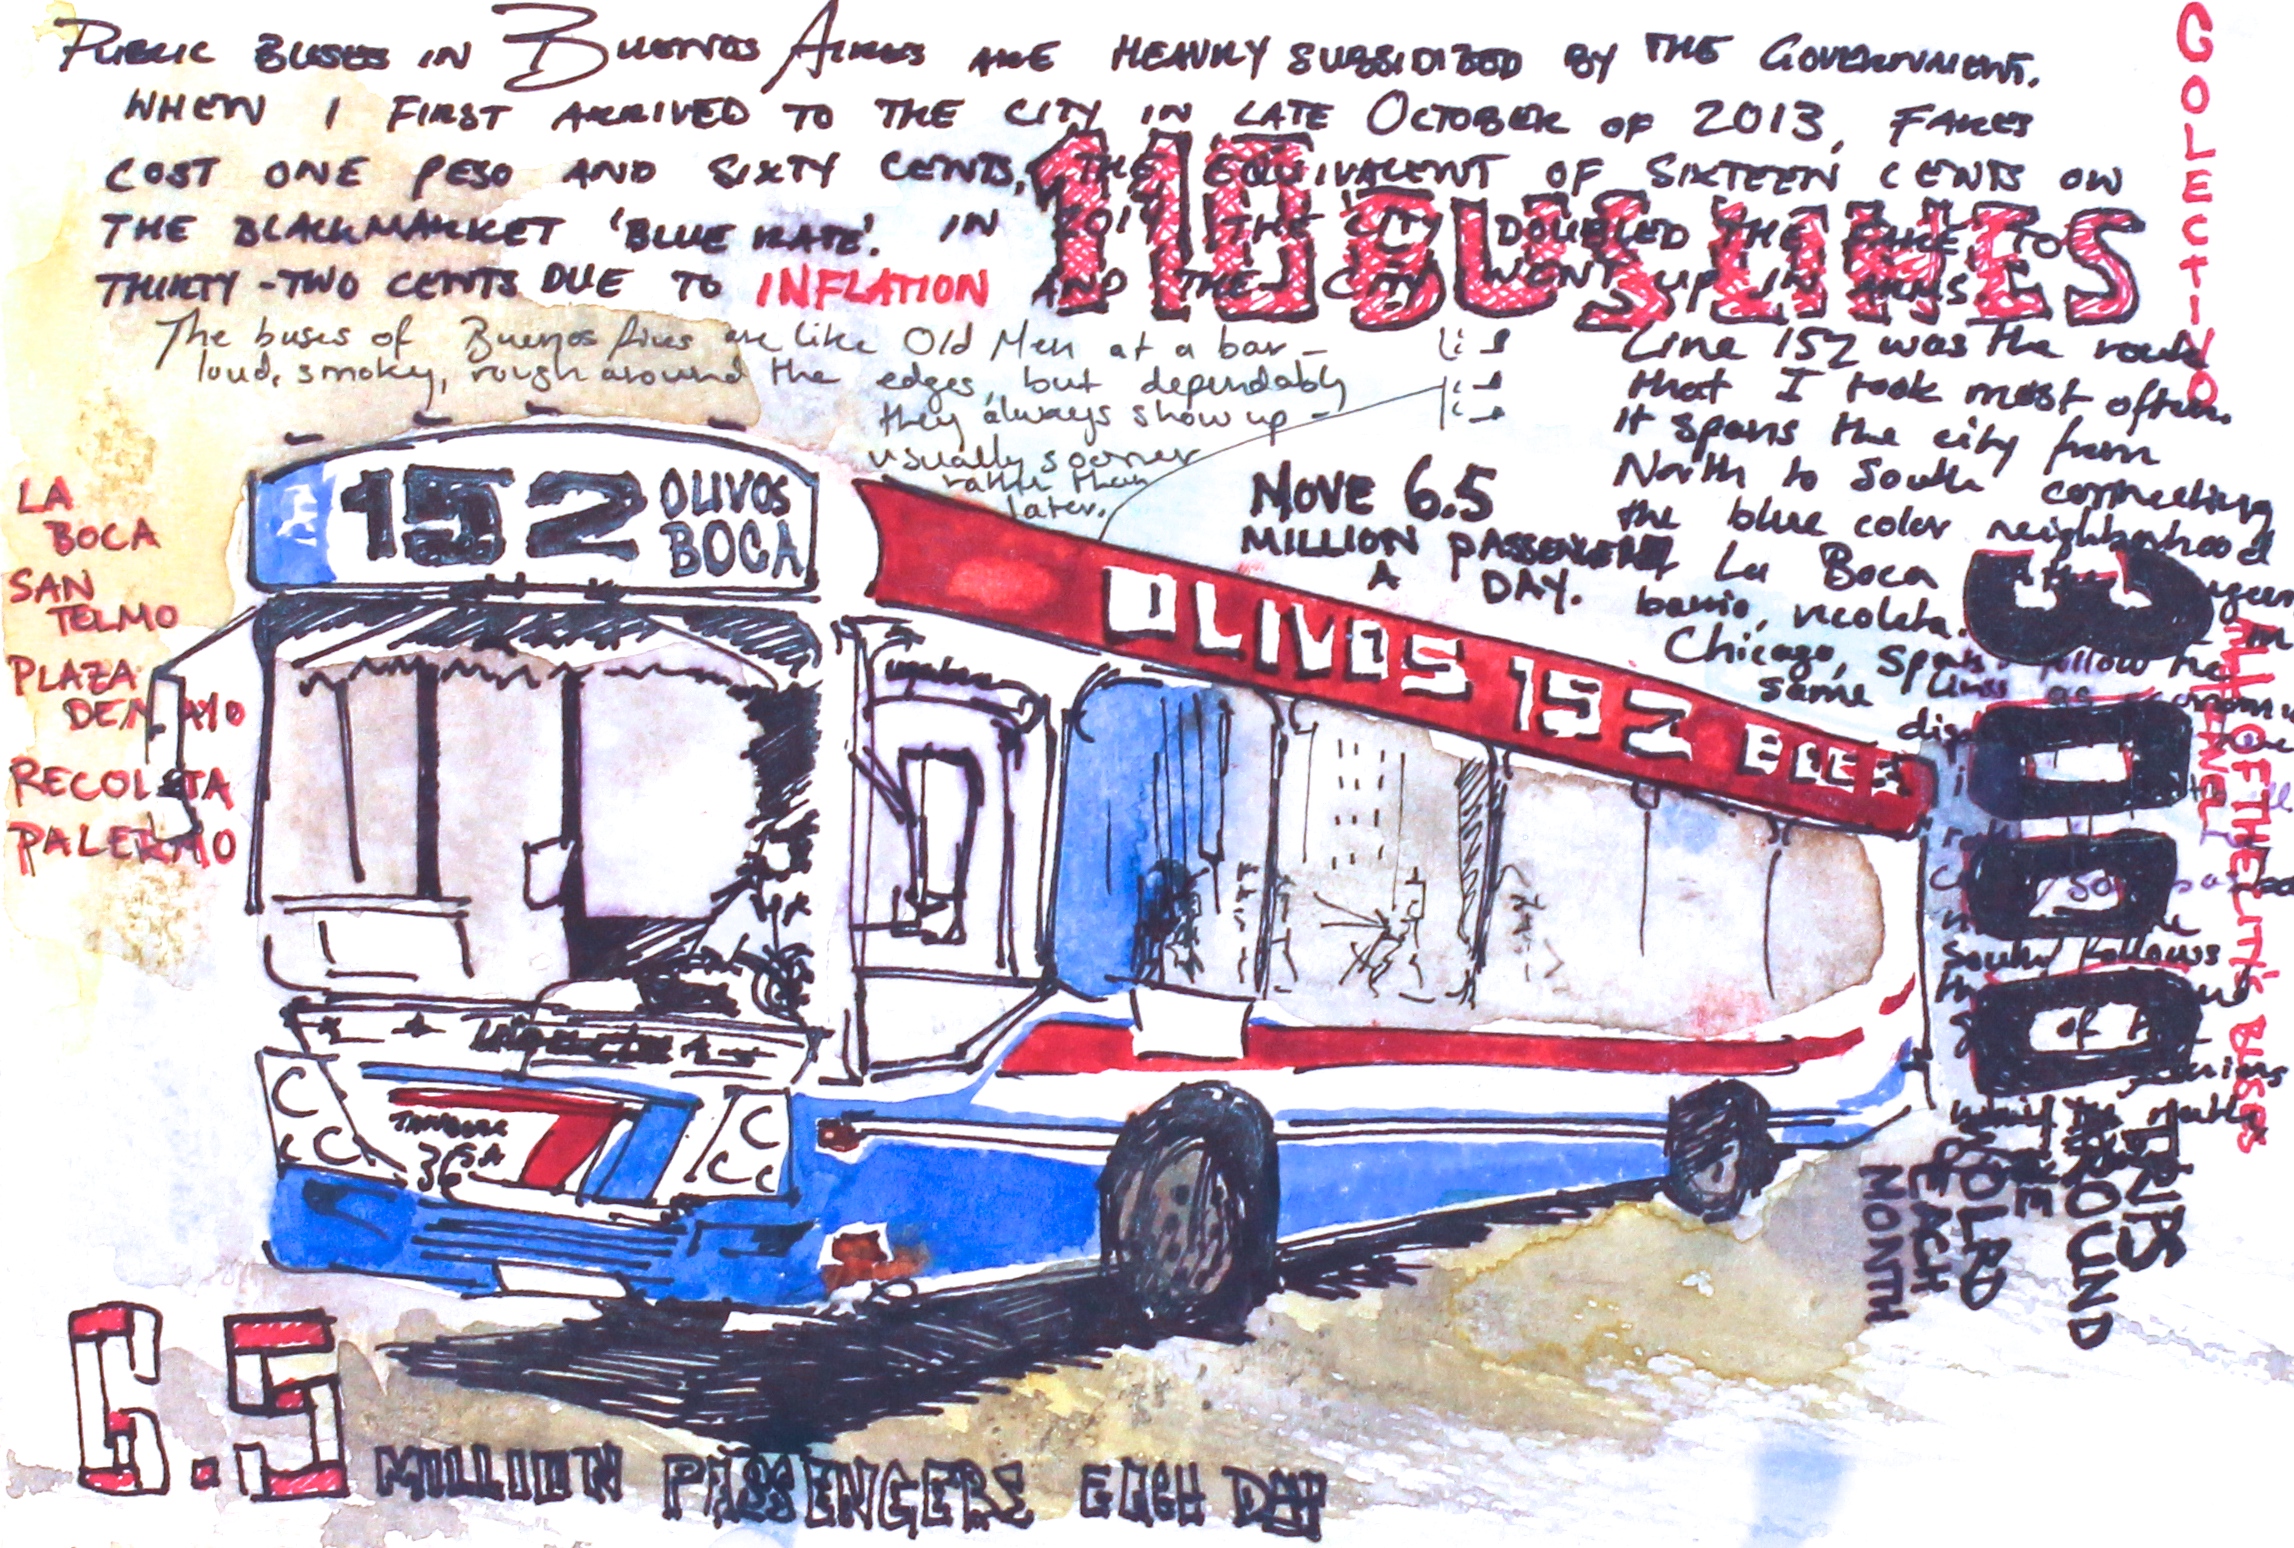 PUBLIC BUSES IN BUENOS AIRES ARE HEAVILY SUBSIDIZED BY THE GOVERNMENT.
WHEN I FIRST ARRIVED TO THE CITY IN LATE OCTOBER OF 2013, FARES
COST ONE PESO AND SIXTY CENTS, THE EQUIVALENT OF SIXTEEN CENTS ON
THE BLACKMARKET 'BLUE RATE'. IN 2014 THE CITY DOUBLED THE FARE TO
THIRTY-TWO CENTS DUE TO INFLATION AND THE CITY WENT UP IN ARMS
110 BUS LINES
COLECTIVO
The buses of Buenos Aires are like Old Men at a bar -
loud, smoky, rough around the edges, but dependably
they always show up -
usually sooner
rather than
later.
MOVE 6.5
MILLION PASSENGERS
A DAY.
Line 152 was the route
that I took most often.
It spans the city from
North to South connecting
the blue color neighborhood
La Boca
barrio, recoleta. In
Chicago, follow the
same lines as
South follows
of
LA
BOCA
SAN
TELMO
PLAZA
DE MAYO
RECOLETA
PALERMO
152 OLIVOS
BOCA
OLIVOS 152 BOCA
3000
TRIPS
AROUND
THE
WORLD
EACH
MONTH
ALL OF THE CITY'S BUSES
6.5 MILLION PASSENGERS EACH DAY